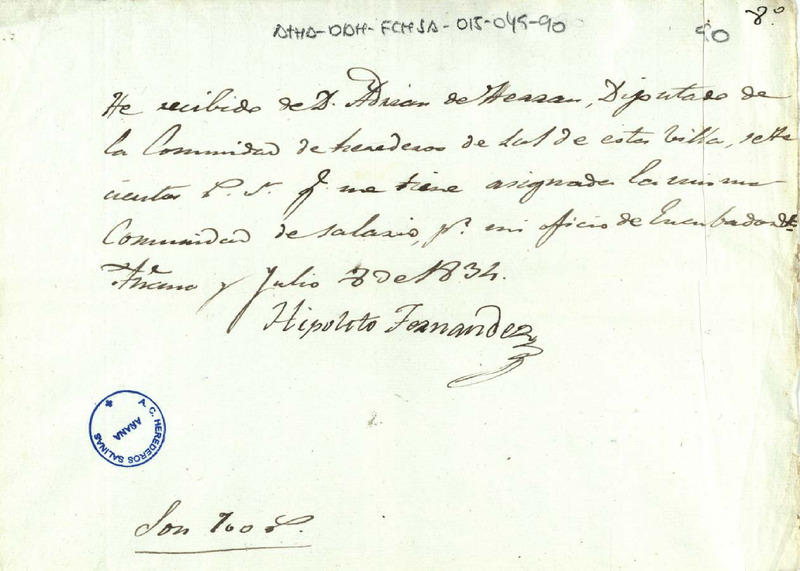 8º
ATHA-DDH-FCHSA-015-045-90
90
He recibido de D. Adrian de Herran, Diputado de
la Comunidad de herederos de Sal de esta Villa, sete
cientos r. v. q. me tiene asignada la misma
Comunidad de salario, pr. mi oficio de Encubador de
Añana y Julio 8 de 1834.
Hipolito Fernandez
A. C. HEREDEROS SALINAS
AÑANA
Son 700 r.